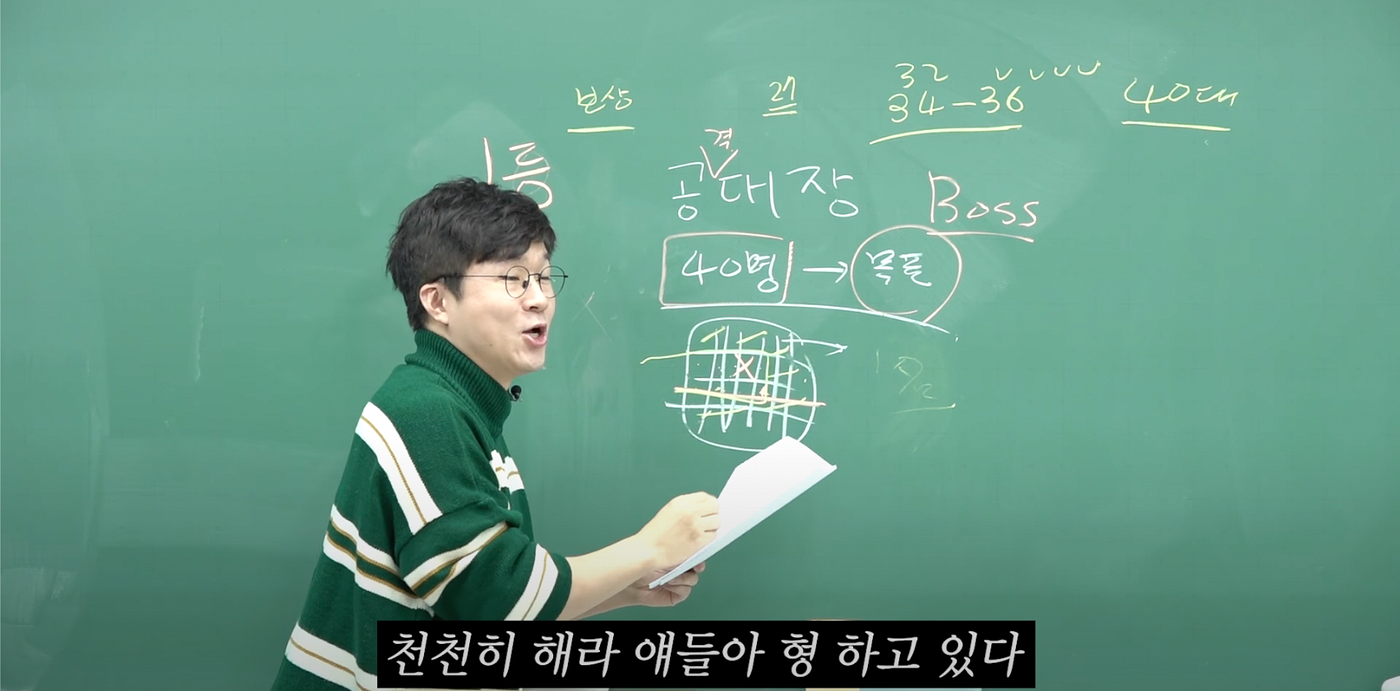 보상 27 32
34-36 40대
1등 공격대장 Boss
40명 → 목표
천천히 해라 얘들아 형 하고 있다